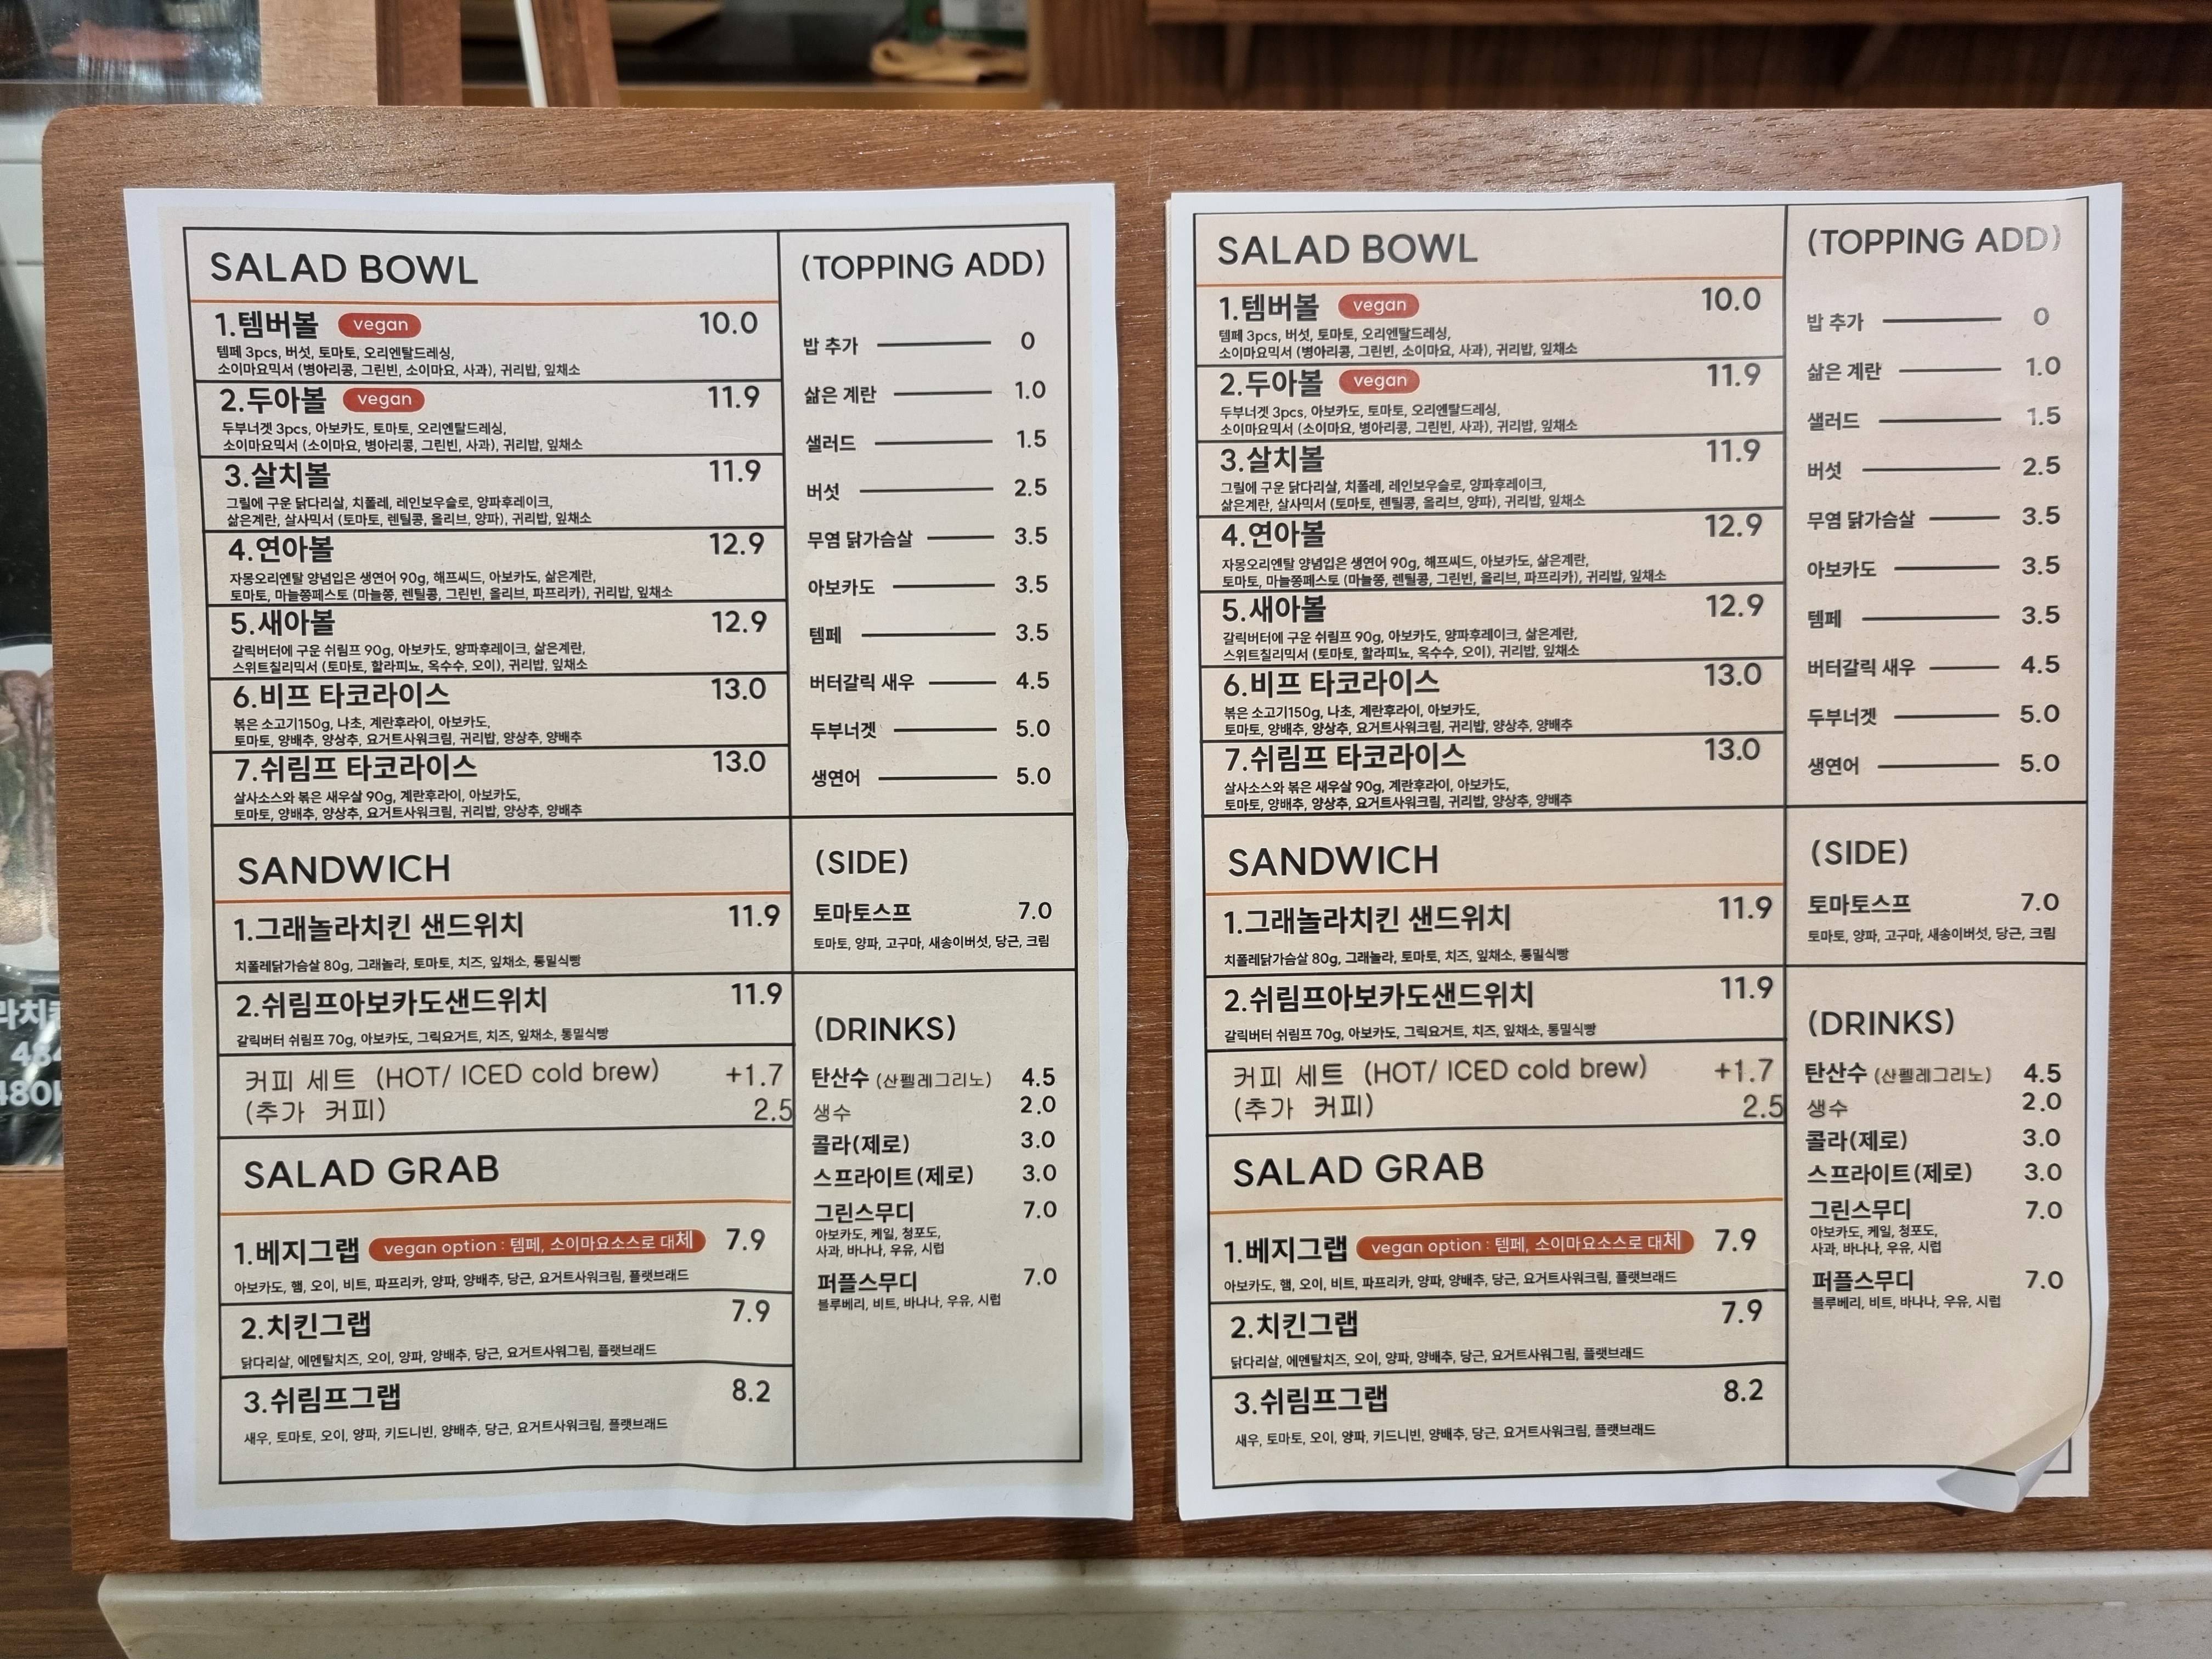 SALAD BOWL
1.템버볼 vegan 10.0
템페 3pcs, 버섯, 토마토, 오리엔탈드레싱,
소이마요믹서 (병아리콩, 그린빈, 소이마요, 사과), 귀리밥, 잎채소
2.두아볼 vegan 11.9
두부너겟 3pcs, 아보카도, 토마토, 오리엔탈드레싱,
소이마요믹서 (소이마요, 병아리콩, 그린빈, 사과), 귀리밥, 잎채소
3.살치볼 11.9
그릴에 구운 닭다리살, 치폴레, 레인보우슬로, 양파후레이크,
삶은계란, 살사믹서 (토마토, 렌틸콩, 올리브, 양파), 귀리밥, 잎채소
4.연아볼 12.9
자몽오리엔탈 양념입은 생연어 90g, 해프씨드, 아보카도, 삶은계란,
토마토, 마늘쫑페스토 (마늘쫑, 렌틸콩, 그린빈, 올리브, 파프리카), 귀리밥, 잎채소
5.새아볼 12.9
갈릭버터에 구운 쉬림프 90g, 아보카도, 양파후레이크, 삶은계란,
스위트칠리믹서 (토마토, 할라피뇨, 옥수수, 오이), 귀리밥, 잎채소
6.비프 타코라이스 13.0
볶은 소고기150g, 나초, 계란후라이, 아보카도,
토마토, 양배추, 양상추, 요거트사워크림, 귀리밥, 양상추, 양배추
7.쉬림프 타코라이스 13.0
살사소스와 볶은 새우살 90g, 계란후라이, 아보카도,
토마토, 양배추, 양상추, 요거트사워크림, 귀리밥, 양상추, 양배추
SANDWICH
1.그래놀라치킨 샌드위치 11.9
치폴레닭가슴살 80g, 그래놀라, 토마토, 치즈, 잎채소, 통밀식빵
2.쉬림프아보카도샌드위치 11.9
갈릭버터 쉬림프 70g, 아보카도, 그릭요거트, 치즈, 잎채소, 통밀식빵
커피 세트 (HOT/ ICED cold brew) +1.7
(추가 커피) 2.5
SALAD GRAB
1.베지그랩 vegan option : 템페, 소이마요소스로 대체 7.9
아보카도, 햄, 오이, 비트, 파프리카, 양파, 양배추, 당근, 요거트사워크림, 플랫브래드
2.치킨그랩 7.9
닭다리살, 에멘탈치즈, 오이, 양파, 양배추, 당근, 요거트사워그림, 플랫브래드
3.쉬림프그랩 8.2
새우, 토마토, 오이, 양파, 키드니빈, 양배추, 당근, 요거트사워크림, 플랫브래드
(TOPPING ADD)
밥 추가 0
삶은 계란 1.0
샐러드 1.5
버섯 2.5
무염 닭가슴살 3.5
아보카도 3.5
템페 3.5
버터갈릭 새우 4.5
두부너겟 5.0
생연어 5.0
(SIDE)
토마토스프 7.0
토마토, 양파, 고구마, 새송이버섯, 당근, 크림
(DRINKS)
탄산수 (산펠레그리노) 4.5
생수 2.0
콜라(제로) 3.0
스프라이트(제로) 3.0
그린스무디 7.0
아보카도, 케일, 청포도,
사과, 바나나, 우유, 시럽
퍼플스무디 7.0
블루베리, 비트, 바나나, 우유, 시럽
SALAD BOWL
1.템버볼 vegan 10.0
템페 3pcs, 버섯, 토마토, 오리엔탈드레싱,
소이마요믹서 (병아리콩, 그린빈, 소이마요, 사과), 귀리밥, 잎채소
2.두아볼 vegan 11.9
두부너겟 3pcs, 아보카도, 토마토, 오리엔탈드레싱,
소이마요믹서 (소이마요, 병아리콩, 그린빈, 사과), 귀리밥, 잎채소
3.살치볼 11.9
그릴에 구운 닭다리살, 치폴레, 레인보우슬로, 양파후레이크,
삶은계란, 살사믹서 (토마토, 렌틸콩, 올리브, 양파), 귀리밥, 잎채소
4.연아볼 12.9
자몽오리엔탈 양념입은 생연어 90g, 해프씨드, 아보카도, 삶은계란,
토마토, 마늘쫑페스토 (마늘쫑, 렌틸콩, 그린빈, 올리브, 파프리카), 귀리밥, 잎채소
5.새아볼 12.9
갈릭버터에 구운 쉬림프 90g, 아보카도, 양파후레이크, 삶은계란,
스위트칠리믹서 (토마토, 할라피뇨, 옥수수, 오이), 귀리밥, 잎채소
6.비프 타코라이스 13.0
볶은 소고기150g, 나초, 계란후라이, 아보카도,
토마토, 양배추, 양상추, 요거트사워크림, 귀리밥, 양상추, 양배추
7.쉬림프 타코라이스 13.0
살사소스와 볶은 새우살 90g, 계란후라이, 아보카도,
토마토, 양배추, 양상추, 요거트사워크림, 귀리밥, 양상추, 양배추
SANDWICH
1.그래놀라치킨 샌드위치 11.9
치폴레닭가슴살 80g, 그래놀라, 토마토, 치즈, 잎채소, 통밀식빵
2.쉬림프아보카도샌드위치 11.9
갈릭버터 쉬림프 70g, 아보카도, 그릭요거트, 치즈, 잎채소, 통밀식빵
커피 세트 (HOT/ ICED cold brew) +1.7
(추가 커피) 2.5
SALAD GRAB
1.베지그랩 vegan option : 템페, 소이마요소스로 대체 7.9
아보카도, 햄, 오이, 비트, 파프리카, 양파, 양배추, 당근, 요거트사워크림, 플랫브래드
2.치킨그랩 7.9
닭다리살, 에멘탈치즈, 오이, 양파, 양배추, 당근, 요거트사워그림, 플랫브래드
3.쉬림프그랩 8.2
새우, 토마토, 오이, 양파, 키드니빈, 양배추, 당근, 요거트사워크림, 플랫브래드
(TOPPING ADD)
밥 추가 0
삶은 계란 1.0
샐러드 1.5
버섯 2.5
무염 닭가슴살 3.5
아보카도 3.5
템페 3.5
버터갈릭 새우 4.5
두부너겟 5.0
생연어 5.0
(SIDE)
토마토스프 7.0
토마토, 양파, 고구마, 새송이버섯, 당근, 크림
(DRINKS)
탄산수 (산펠레그리노) 4.5
생수 2.0
콜라(제로) 3.0
스프라이트(제로) 3.0
그린스무디 7.0
아보카도, 케일, 청포도,
사과, 바나나, 우유, 시럽
퍼플스무디 7.0
블루베리, 비트, 바나나, 우유, 시럽